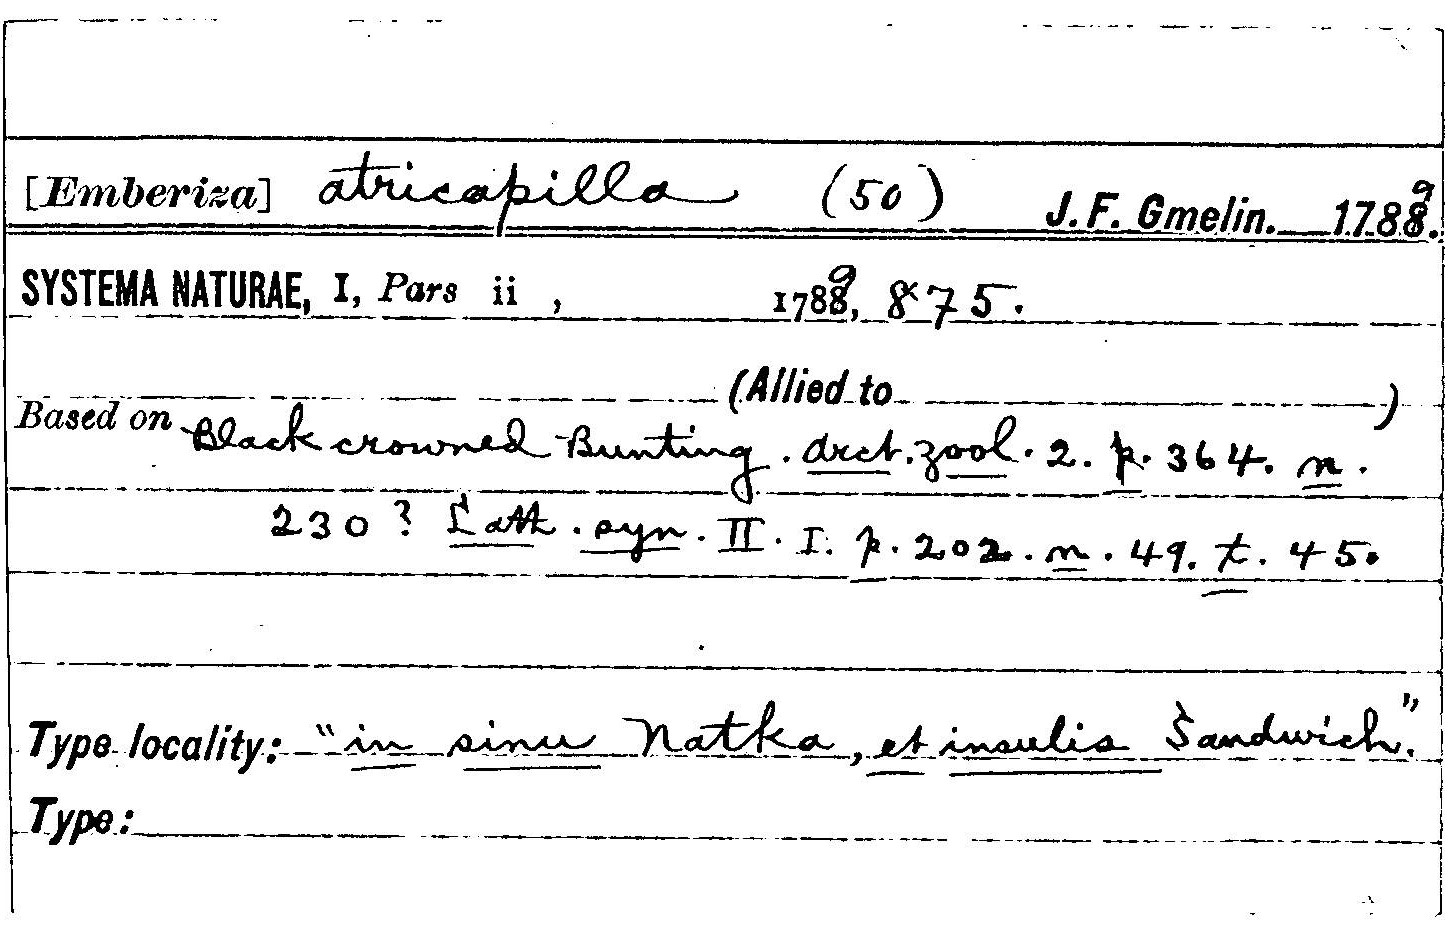 [Emberiza] atricapilla (50) J. F. Gmelin. 1789.
SYSTEMA NATURAE, I, Pars ii , 1789, 875.
(Allied to )
Based on Black crowned Bunting. arct. zool. 2. p. 364. n.
230? Lath. syn. II. I. p. 202. n. 49. t. 45.
Type locality: "in sinu Natka, et insulis Sandwich."
Type: